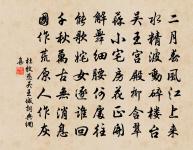 二月春風江上來
水精波動碎樓台
吳王宮殿柳含翠
蘇小宅房花正開
解舞細腰何處往
能歌姹女逐誰回
千秋萬古無消息
國作荒原人作灰
杜牧悲吳王城詞典網
集